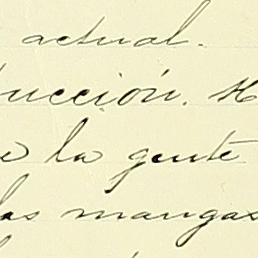 actual.
ucción. H
e la gente
las mangas